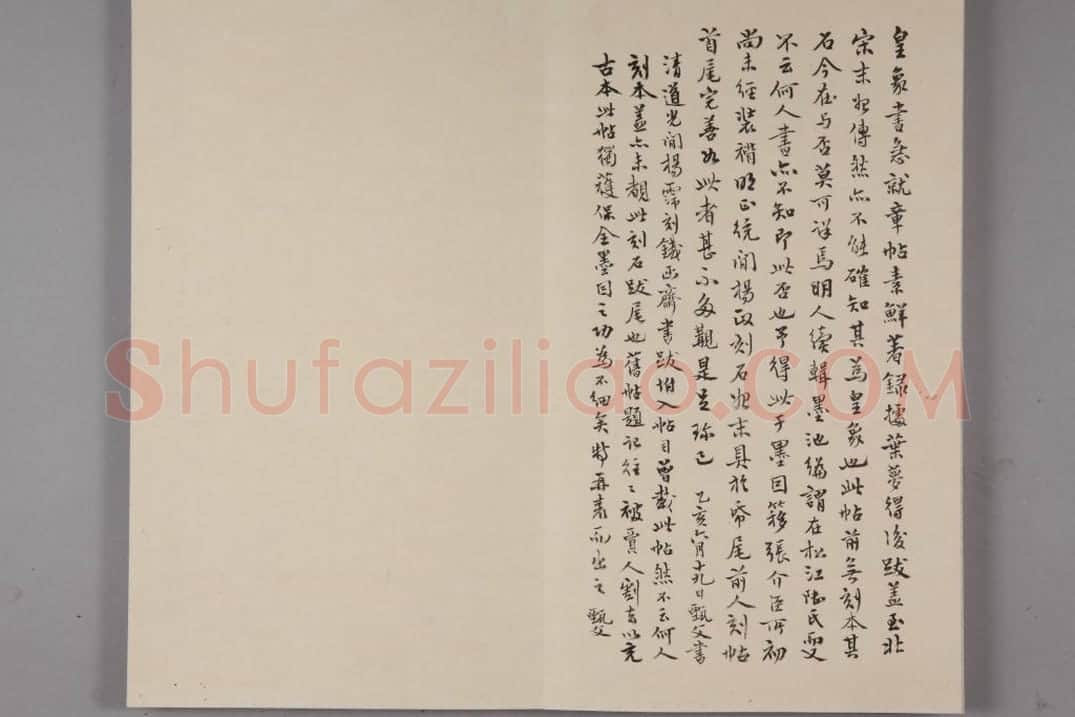 皇象書急就章帖素鮮著録據葉夢得後跋蓋至北
宋末始傳然亦不能確知其為皇象也此帖前無刻本其
石今在与否莫可詳焉明人續輯墨池編謂在松江陸氏而又
不云何人書亦不知即此否也予得此于墨因簃張介臣所初
尚未經裝褙明正統間楊政刻石始末具於帋尾前人刻帖
首尾完善如此者甚不多觀是足珎已 乙亥六月十九日甄父書
清道光間楊霈刻鐵函齋書跋坿入帖目曾載此帖然不云何人
刻本蓋亦未覩此刻石跋尾也舊帖題記往々被賈人割去以充
古本此帖獨獲保全墨因之功為不細矣特再表而出之 甄父
Shufaziliao.COM